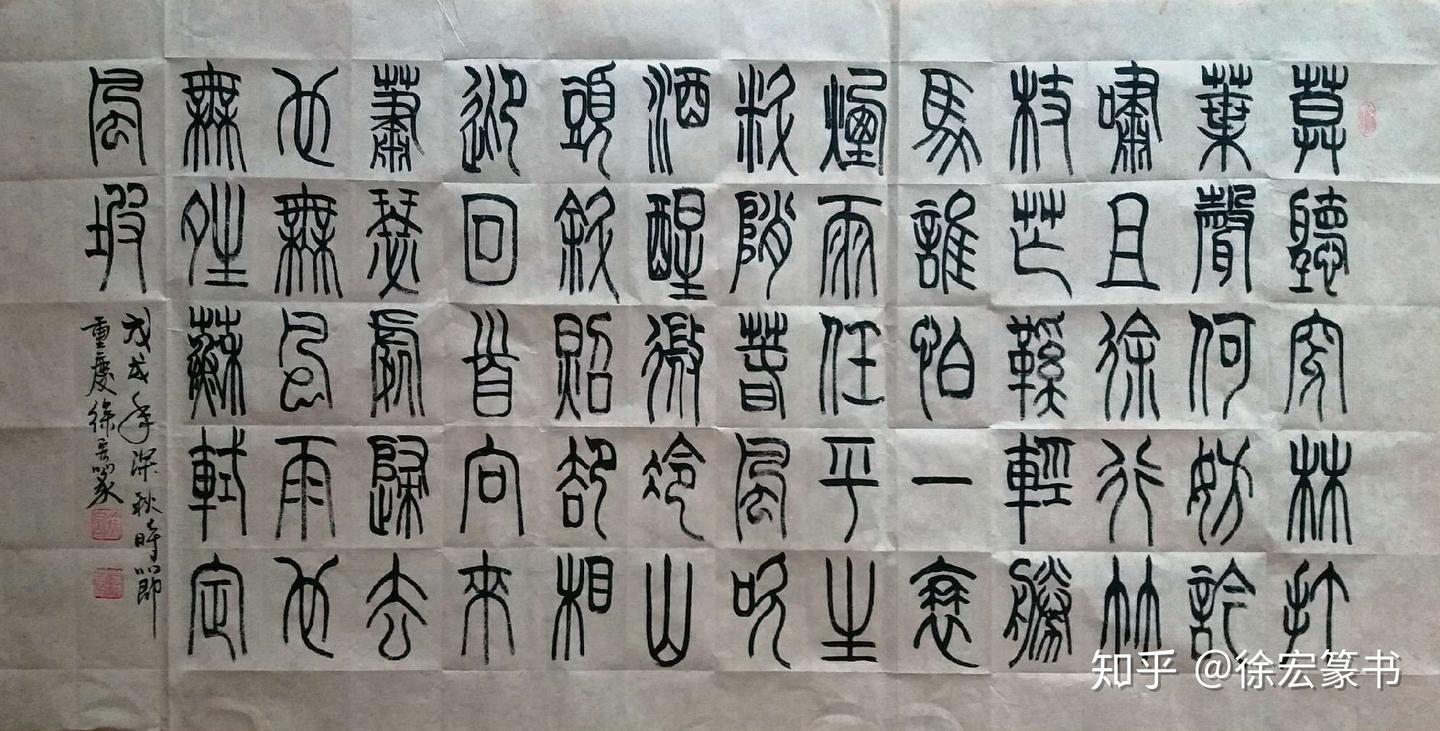 莫聽穿林打
葉聲何妨訡
嘯且徐行竹
杖芒鞵輕勝
馬誰怕一衰
煙雨任平生
料陗春風吹
酒醒微冷山
頭斜照卻相
迎回首向來
蕭瑟處歸去
也無風雨也
無晴蘇軾定
風波
戊戌年深秋時節
重慶徐宏篆
知乎 @徐宏篆书